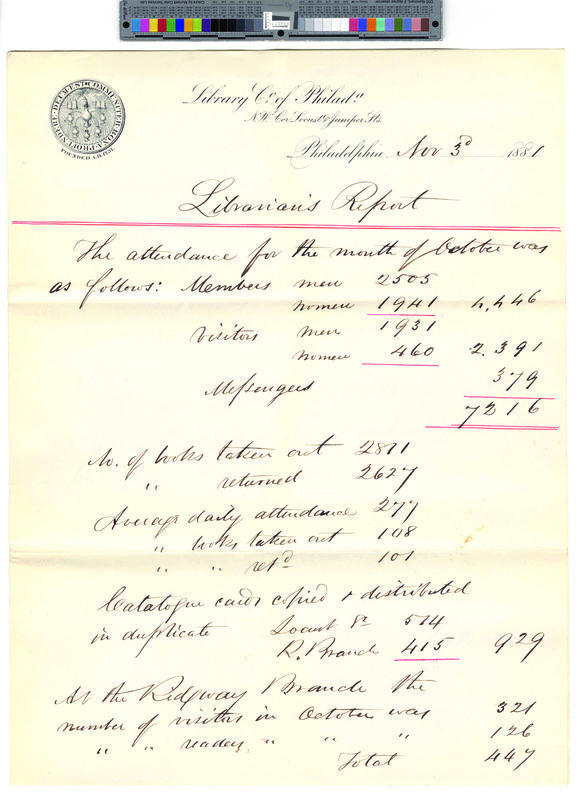 COMMUNITER·BONA·PROFUNDERE·DEUM·EST·
FOUNDED A.D. 1731.
Library Co. of Philada.
N.W. Cor Locust & Juniper Sts.
Philadelphia Nov 3d 1881.
Librarian's Report
The attendance for the month of October was
as follows: Members men 2505
women 1941 4,446
Visitors men 1931
women 460 2.391
Messengers 379
7216
No. of books taken out 2811
" returned 2627
Average daily attendance 277
" books taken out 108
" " retd 101
Catalogue cards copied & distributed
in duplicate Locust St 514
R. Branch 415 929
At the Ridgway Branch the
number of visitors in October was 321
" " readers " " " 126
Total 447